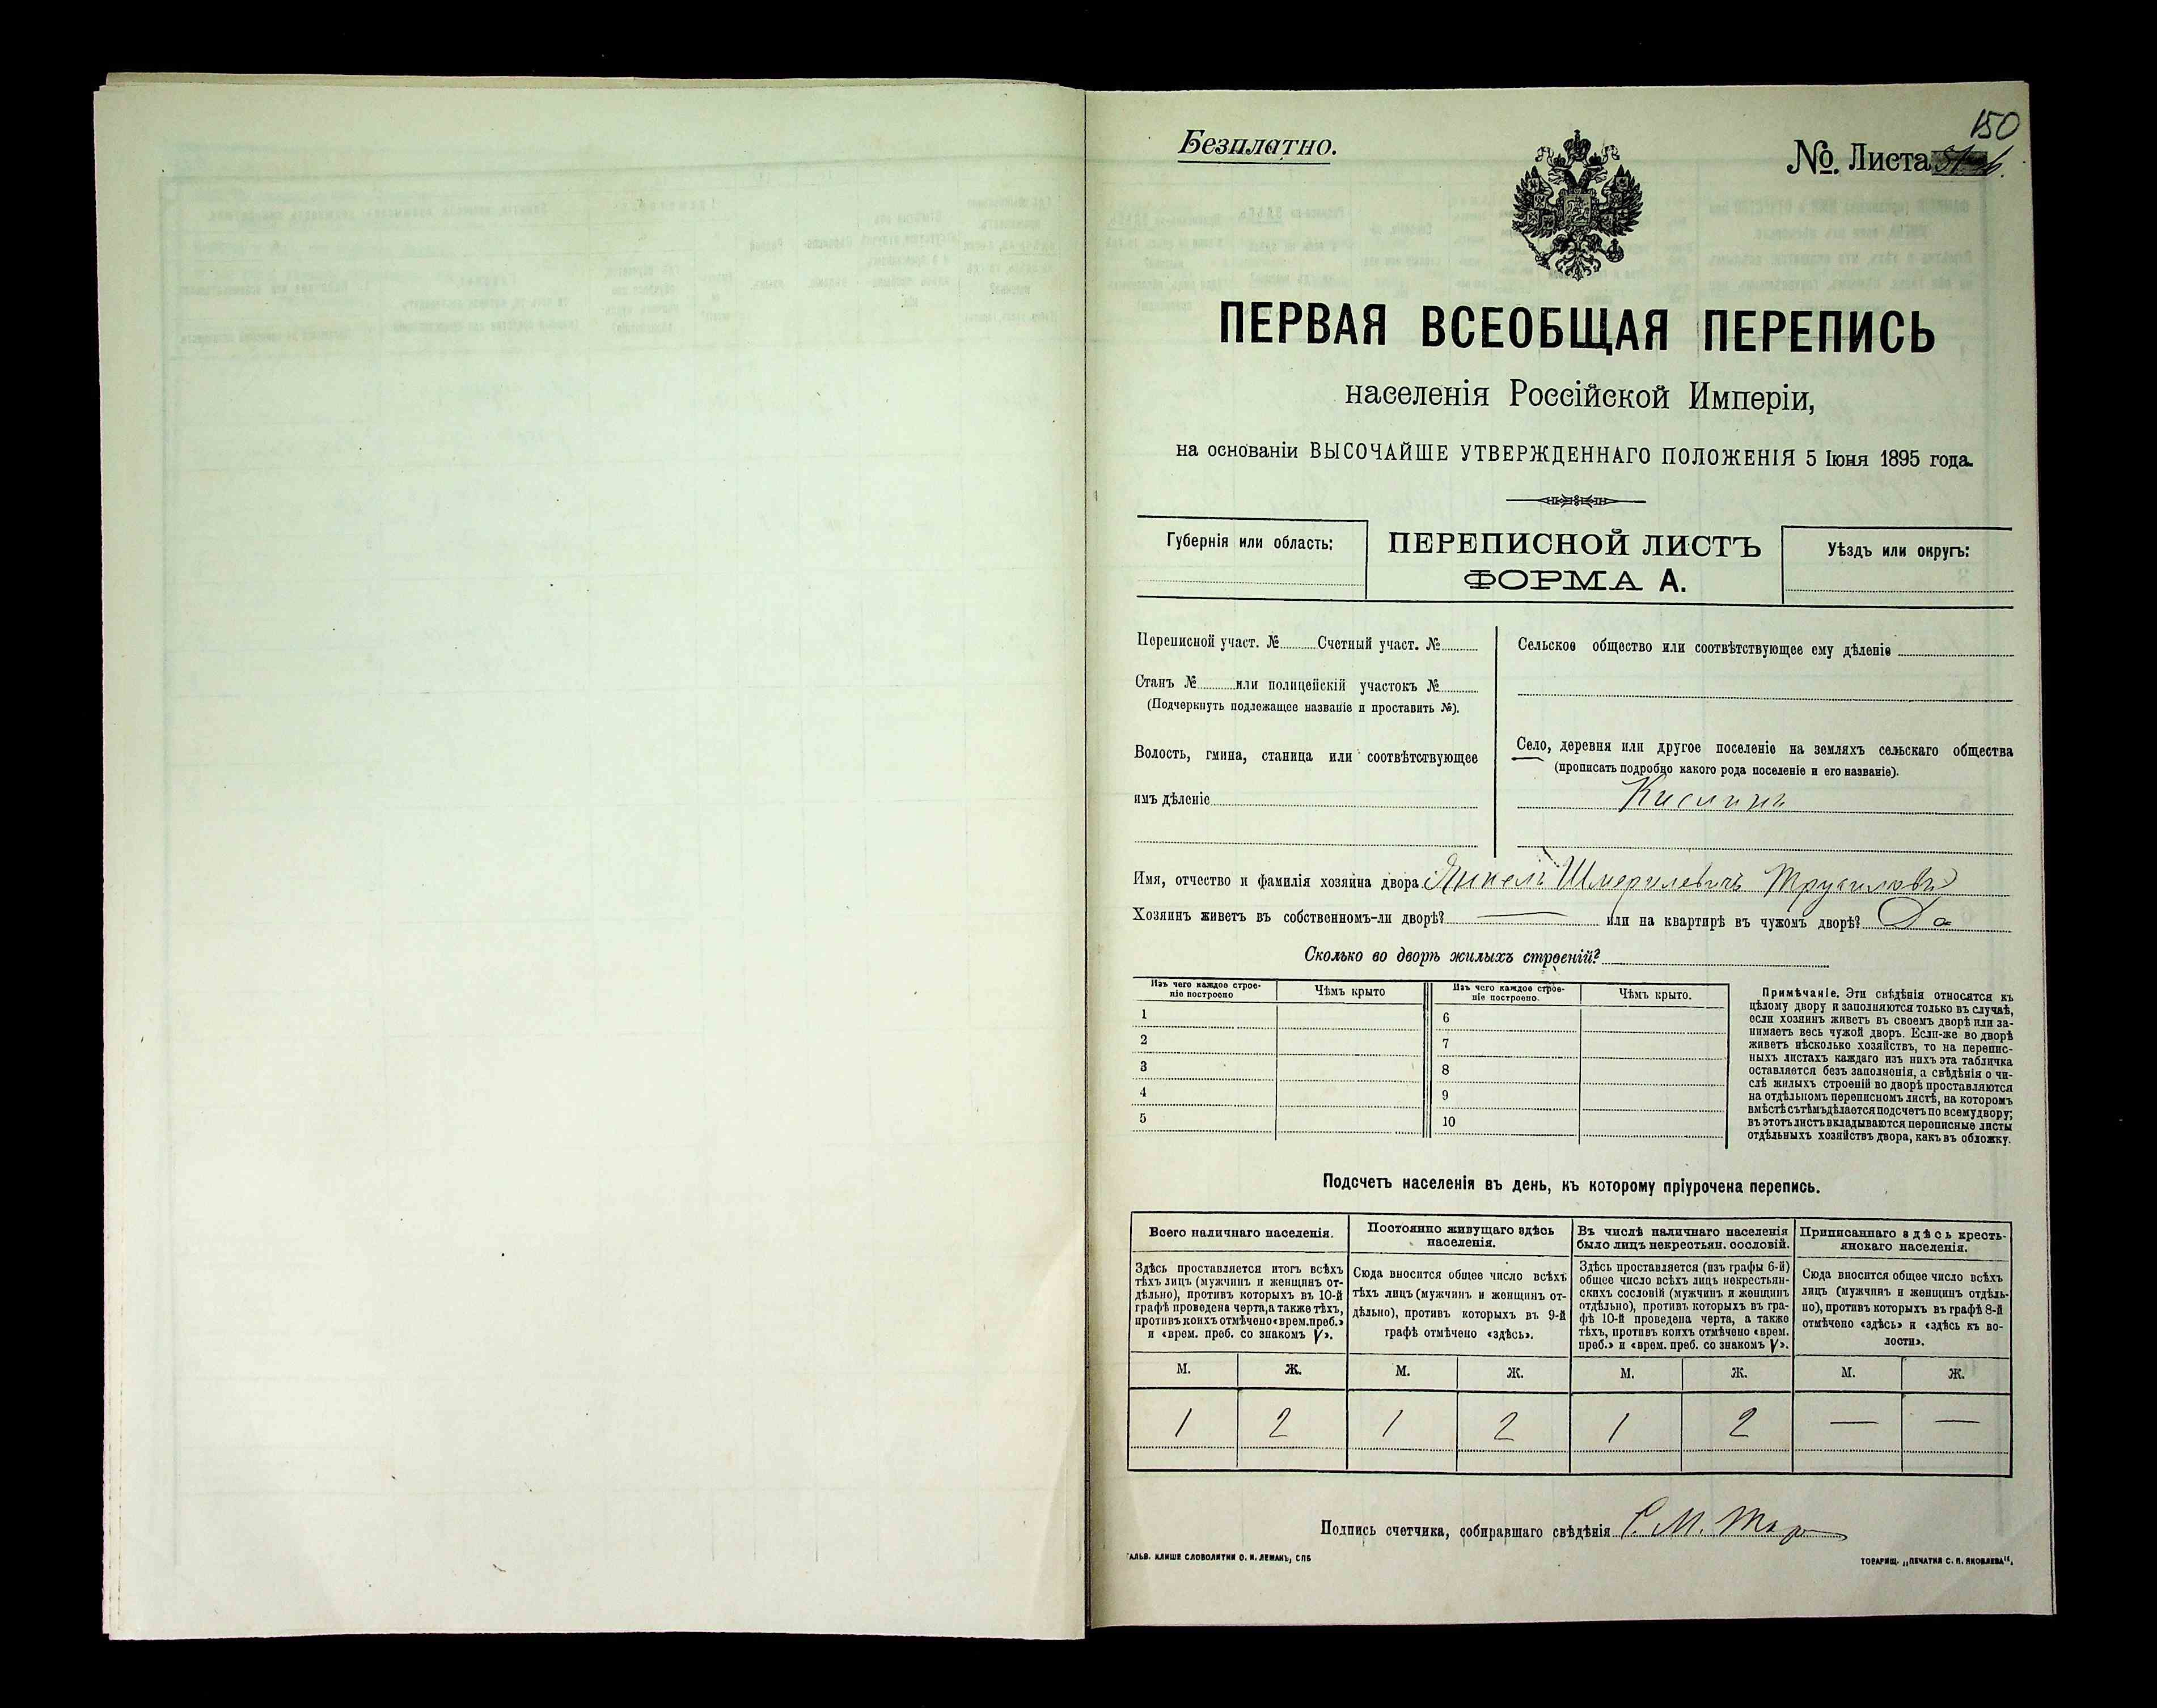 150
Безплатно.
№. Листа
ПЕРВАЯ ВСЕОБЩАЯ ПЕРЕПИСЬ
населенія Россійской Имперіи,
на основаніи ВЫСОЧАЙШЕ УТВЕРЖДЕННАГО ПОЛОЖЕНІЯ 5 Іюня 1895 года.
Губернія или область:
ПЕРЕПИСНОЙ ЛИСТЪ
ФОРМА А.
Уѣздъ или округъ:
Переписной участ. № Счетный участ. №
Станъ № или полицейскій участокъ №
(Подчеркнуть подлежащее названіе и проставить №).
Волость, гмина, станица или соотвѣтствующее
имъ дѣленіе
Сельское общество или соотвѣтствующее ему дѣленіе
Село, деревня или другое поселеніе на земляхъ сельскаго общества
(прописать подробно какого рода поселеніе и его названіе).
Имя, отчество и фамилія хозяина двора Янкель Шмерилевичъ
Хозяинъ живетъ въ собственномъ-ли дворѣ? — или на квартирѣ въ чужомъ дворѣ? Да
Сколько во дворѣ жилыхъ строеній?
Изъ чего каждое строе-
ніе построено
Чѣмъ крыто
Изъ чего каждое строе-
ніе построено.
Чѣмъ крыто.
1 6
2 7
3 8
4 9
5 10
Примѣчаніе. Эти свѣдѣнія относятся къ
цѣлому двору и заполняются только въ случаѣ,
если хозяинъ живетъ въ своемъ дворѣ или за-
нимаетъ весь чужой дворъ. Если-же во дворѣ
живетъ нѣсколько хозяйствъ, то на перепис-
ныхъ листахъ каждаго изъ нихъ эта табличка
оставляется безъ заполненія, а свѣдѣнія о чи-
слѣ жилыхъ строеній во дворѣ проставляются
на отдѣльномъ переписномъ листѣ, на которомъ
вмѣстѣ съ тѣмъ дѣлается подсчетъ по всему двору;
въ этотъ листъ вкладываются переписные листы
отдѣльныхъ хозяйствъ двора, какъ въ обложку.
Подсчетъ населенія въ день, къ которому пріурочена перепись.
Всего наличнаго населенія.
Здѣсь проставляется итогъ всѣхъ
тѣхъ лицъ (мужчинъ и женщинъ от-
дѣльно), противъ которыхъ въ 10-й
графѣ проведена черта, а также тѣхъ,
противъ коихъ отмѣчено «врем. преб.»
и «врем. преб. со знакомъ V».
Постоянно живущаго здѣсь
населенія.
Сюда вносится общее число всѣхъ
тѣхъ лицъ (мужчинъ и женщинъ от-
дѣльно), противъ которыхъ въ 9-й
графѣ отмѣчено «здѣсь».
Въ числѣ наличнаго населенія
было лицъ некрестьян. сословій.
Здѣсь проставляется (изъ графы 6-й)
общее число всѣхъ лицъ некрестьян-
скихъ сословій (мужчинъ и женщинъ
отдѣльно), противъ которыхъ въ гра-
фѣ 10-й проведена черта, а также
тѣхъ, противъ коихъ отмѣчено «врем.
преб.» и «врем. преб. со знакомъ V».
Приписаннаго здѣсь кресть-
янскаго населенія.
Сюда вносится общее число всѣхъ
лицъ (мужчинъ и женщинъ отдѣль-
но), противъ которыхъ въ графѣ 8-й
отмѣчено «здѣсь» и «здѣсь къ во-
лости».
М. Ж. М. Ж. М. Ж. М. Ж.
1 2 1 2 1 2 — —
Подпись счетчика, собиравшаго свѣдѣнія
ГАЛЬВ. КЛИШЕ СЛОВОЛИТНИ О. И. ЛЕМАНЪ, СПБ
ТОВАРИЩ. „ПЕЧАТНЯ С. П. ЯКОВЛЕВА“.